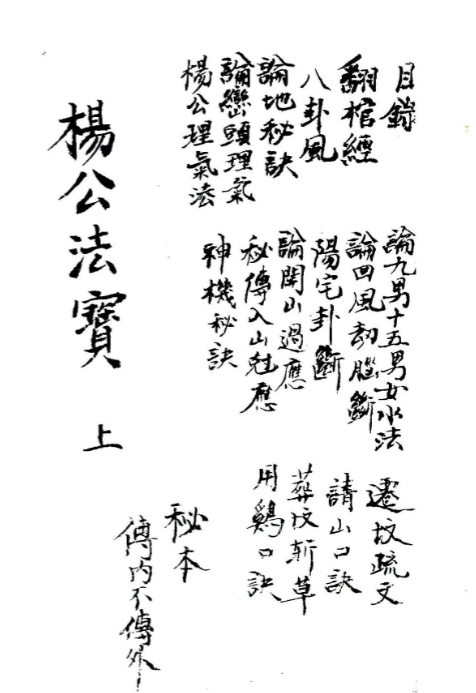 目錄
翻棺經
八卦風
論地秘訣
論巒頭理氣
楊公理氣法
論九男十五男女水法
論回風劫腦斷
陽宅卦斷
論開山過應
秘傳入山尅應
神機秘訣
遷坟疏文
請山口訣
葬坟斬草
用鷄口訣
楊公法寶 上
秘本
傳内不傳外